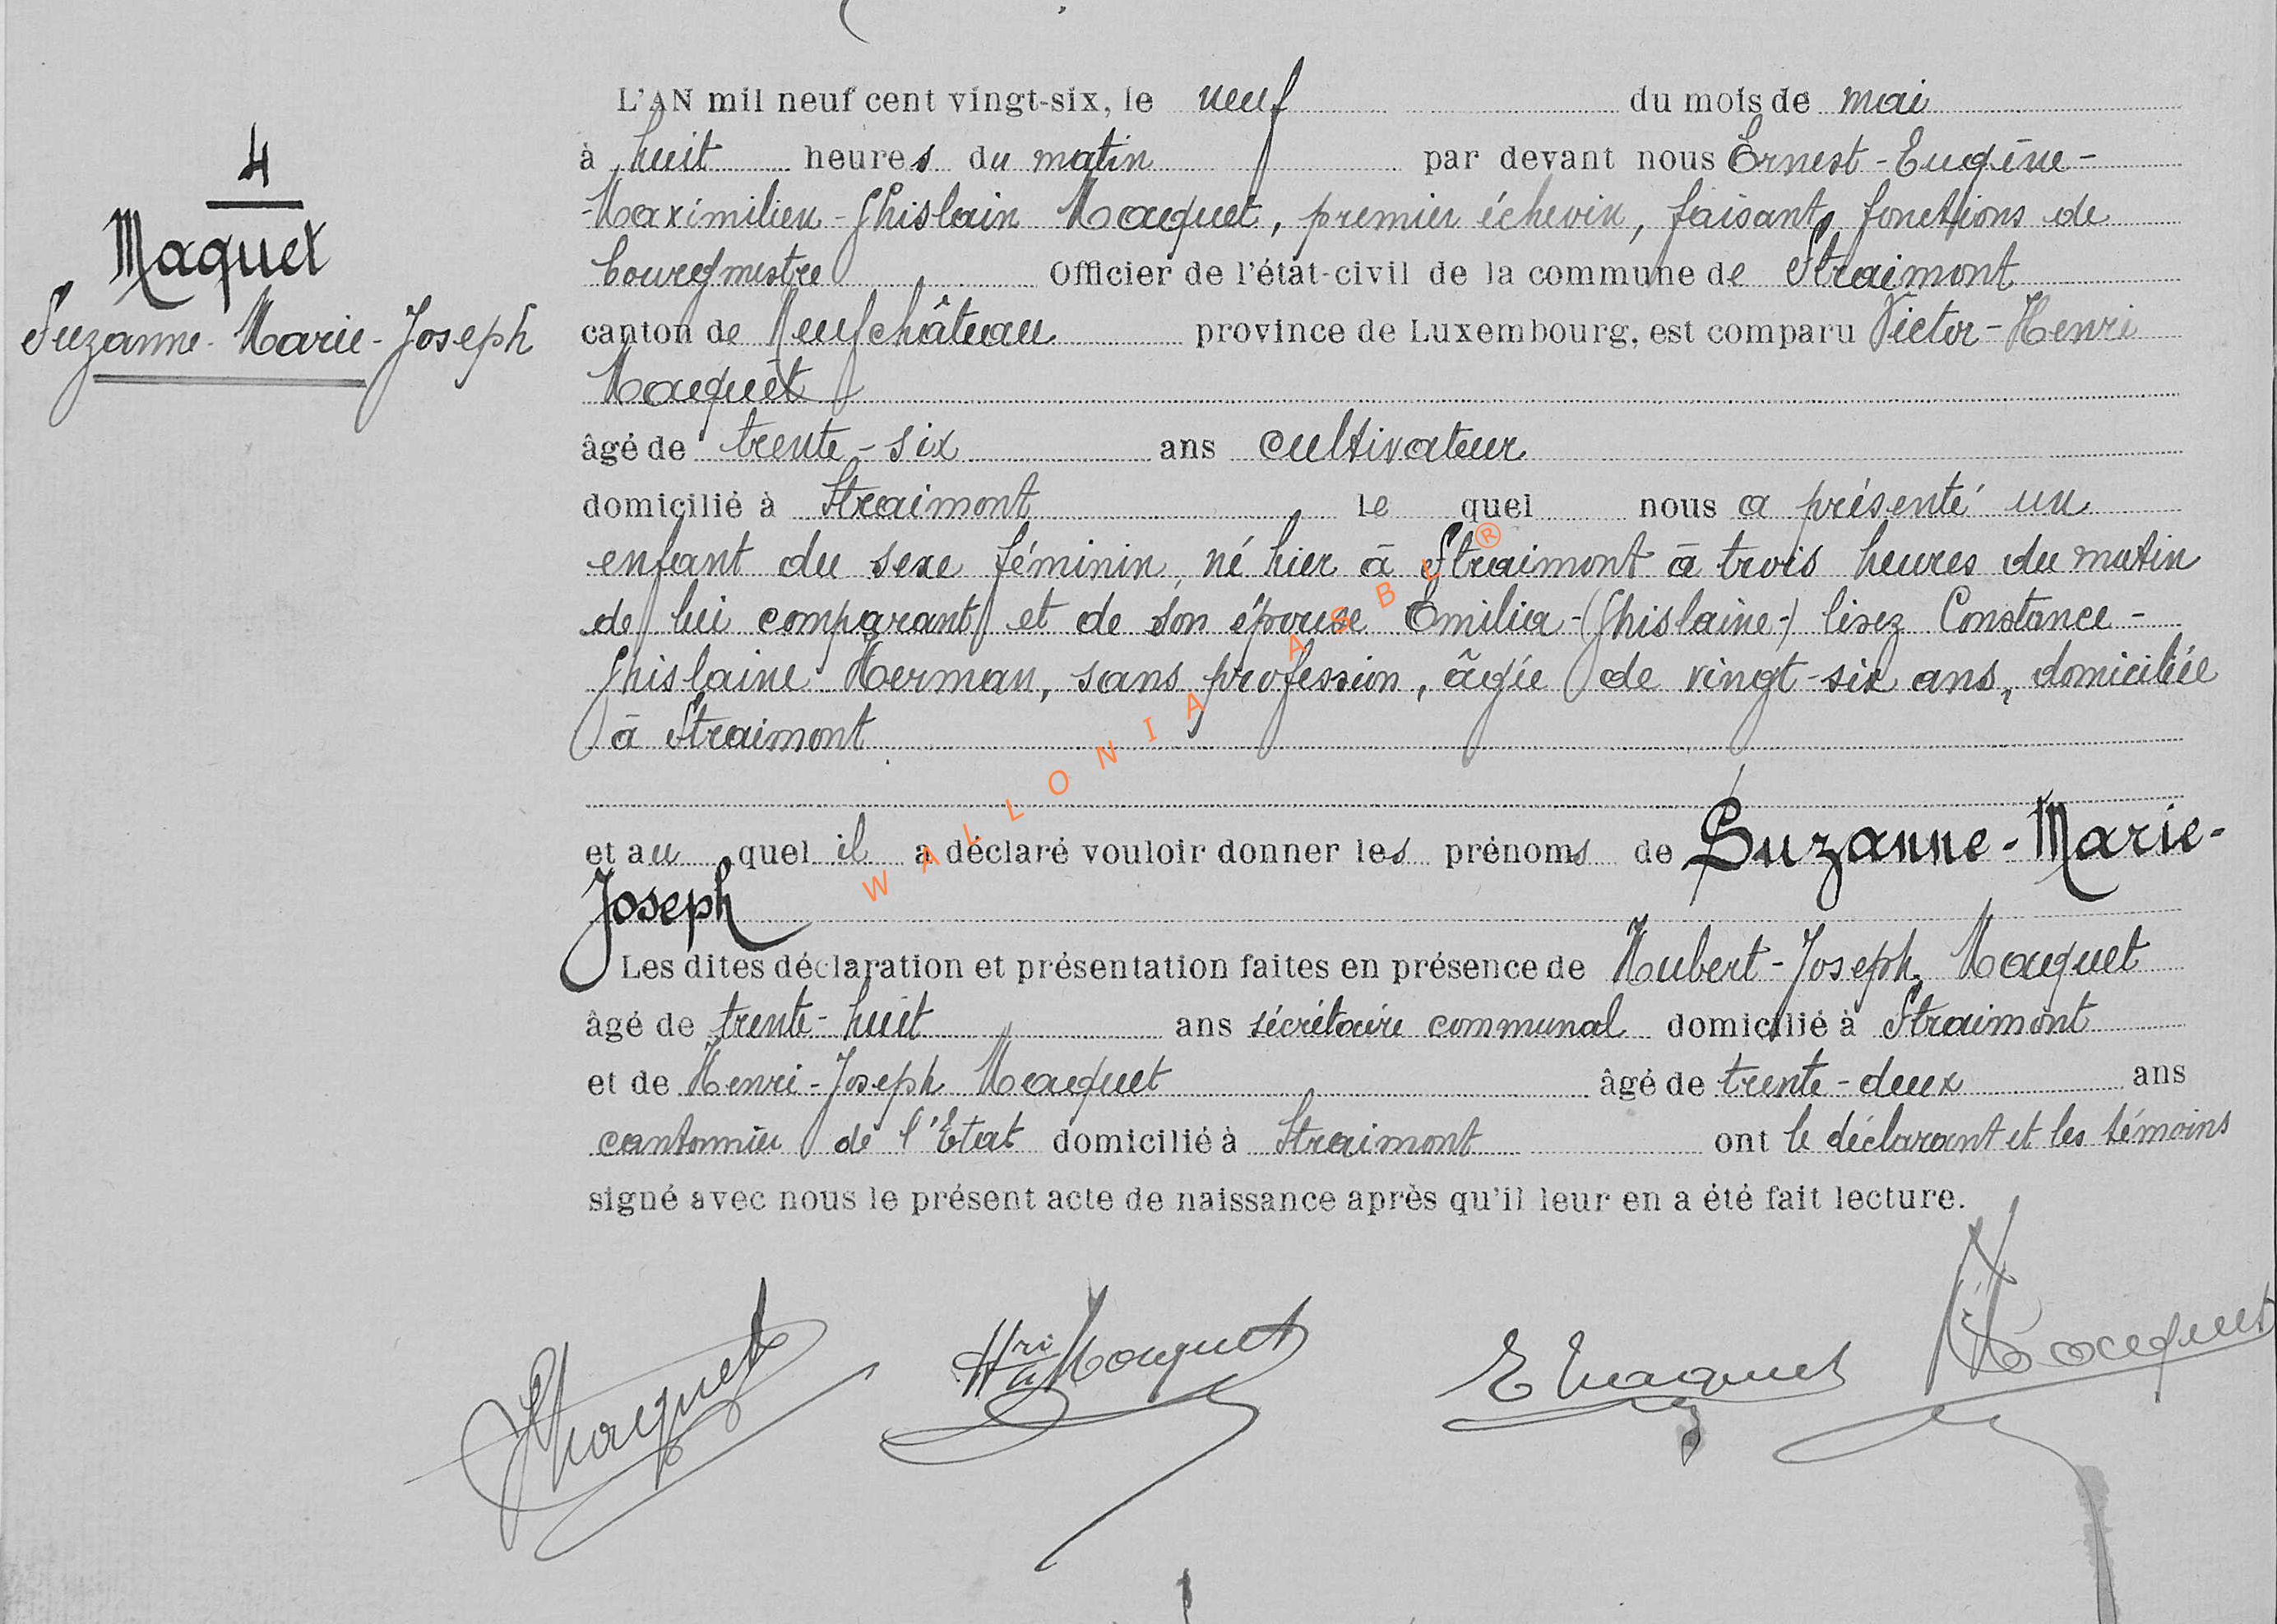 4
Maquet
Suzanne-Marie-Joseph
L'AN mil neuf cent vingt-six, le neuf du mois de mai
à huit heures du matin par devant nous Ernest-Eugène-
-Maximilien-Ghislain Maquet, premier échevin, faisant fonctions de
bourgmestre Officier de l'état-civil de la commune de Straimont
canton de Neufchâteau province de Luxembourg, est comparu Victor-Henri
Maquet
âgé de trente-six ans cultivateur
domicilié à Straimont le quel nous a présenté un
enfant du sexe féminin, né hier à Straimont à trois heures du matin
de lui comparant et de son épouse Emilia-(Ghislaine-) lisez Constance-
Ghislaine Herman, sans profession, âgée de vingt-six ans, domiciliée
à Straimont
et au quel il a déclaré vouloir donner les prénoms de Suzanne-Marie-
Joseph
Les dites déclaration et présentation faites en présence de Hubert-Joseph Maquet
âgé de trente-huit ans sécrétaire communal domicilié à Straimont
et de Henri-Joseph Maquet âgé de trente-deux ans
cantonnier de l'Etat domicilié à Straimont ont le déclarant et les témoins
signé avec nous le présent acte de naissance après qu'il leur en a été fait lecture.
Maquet
Hri Maquet
E Maquet
Maquet
WALLONIA ASBL ®